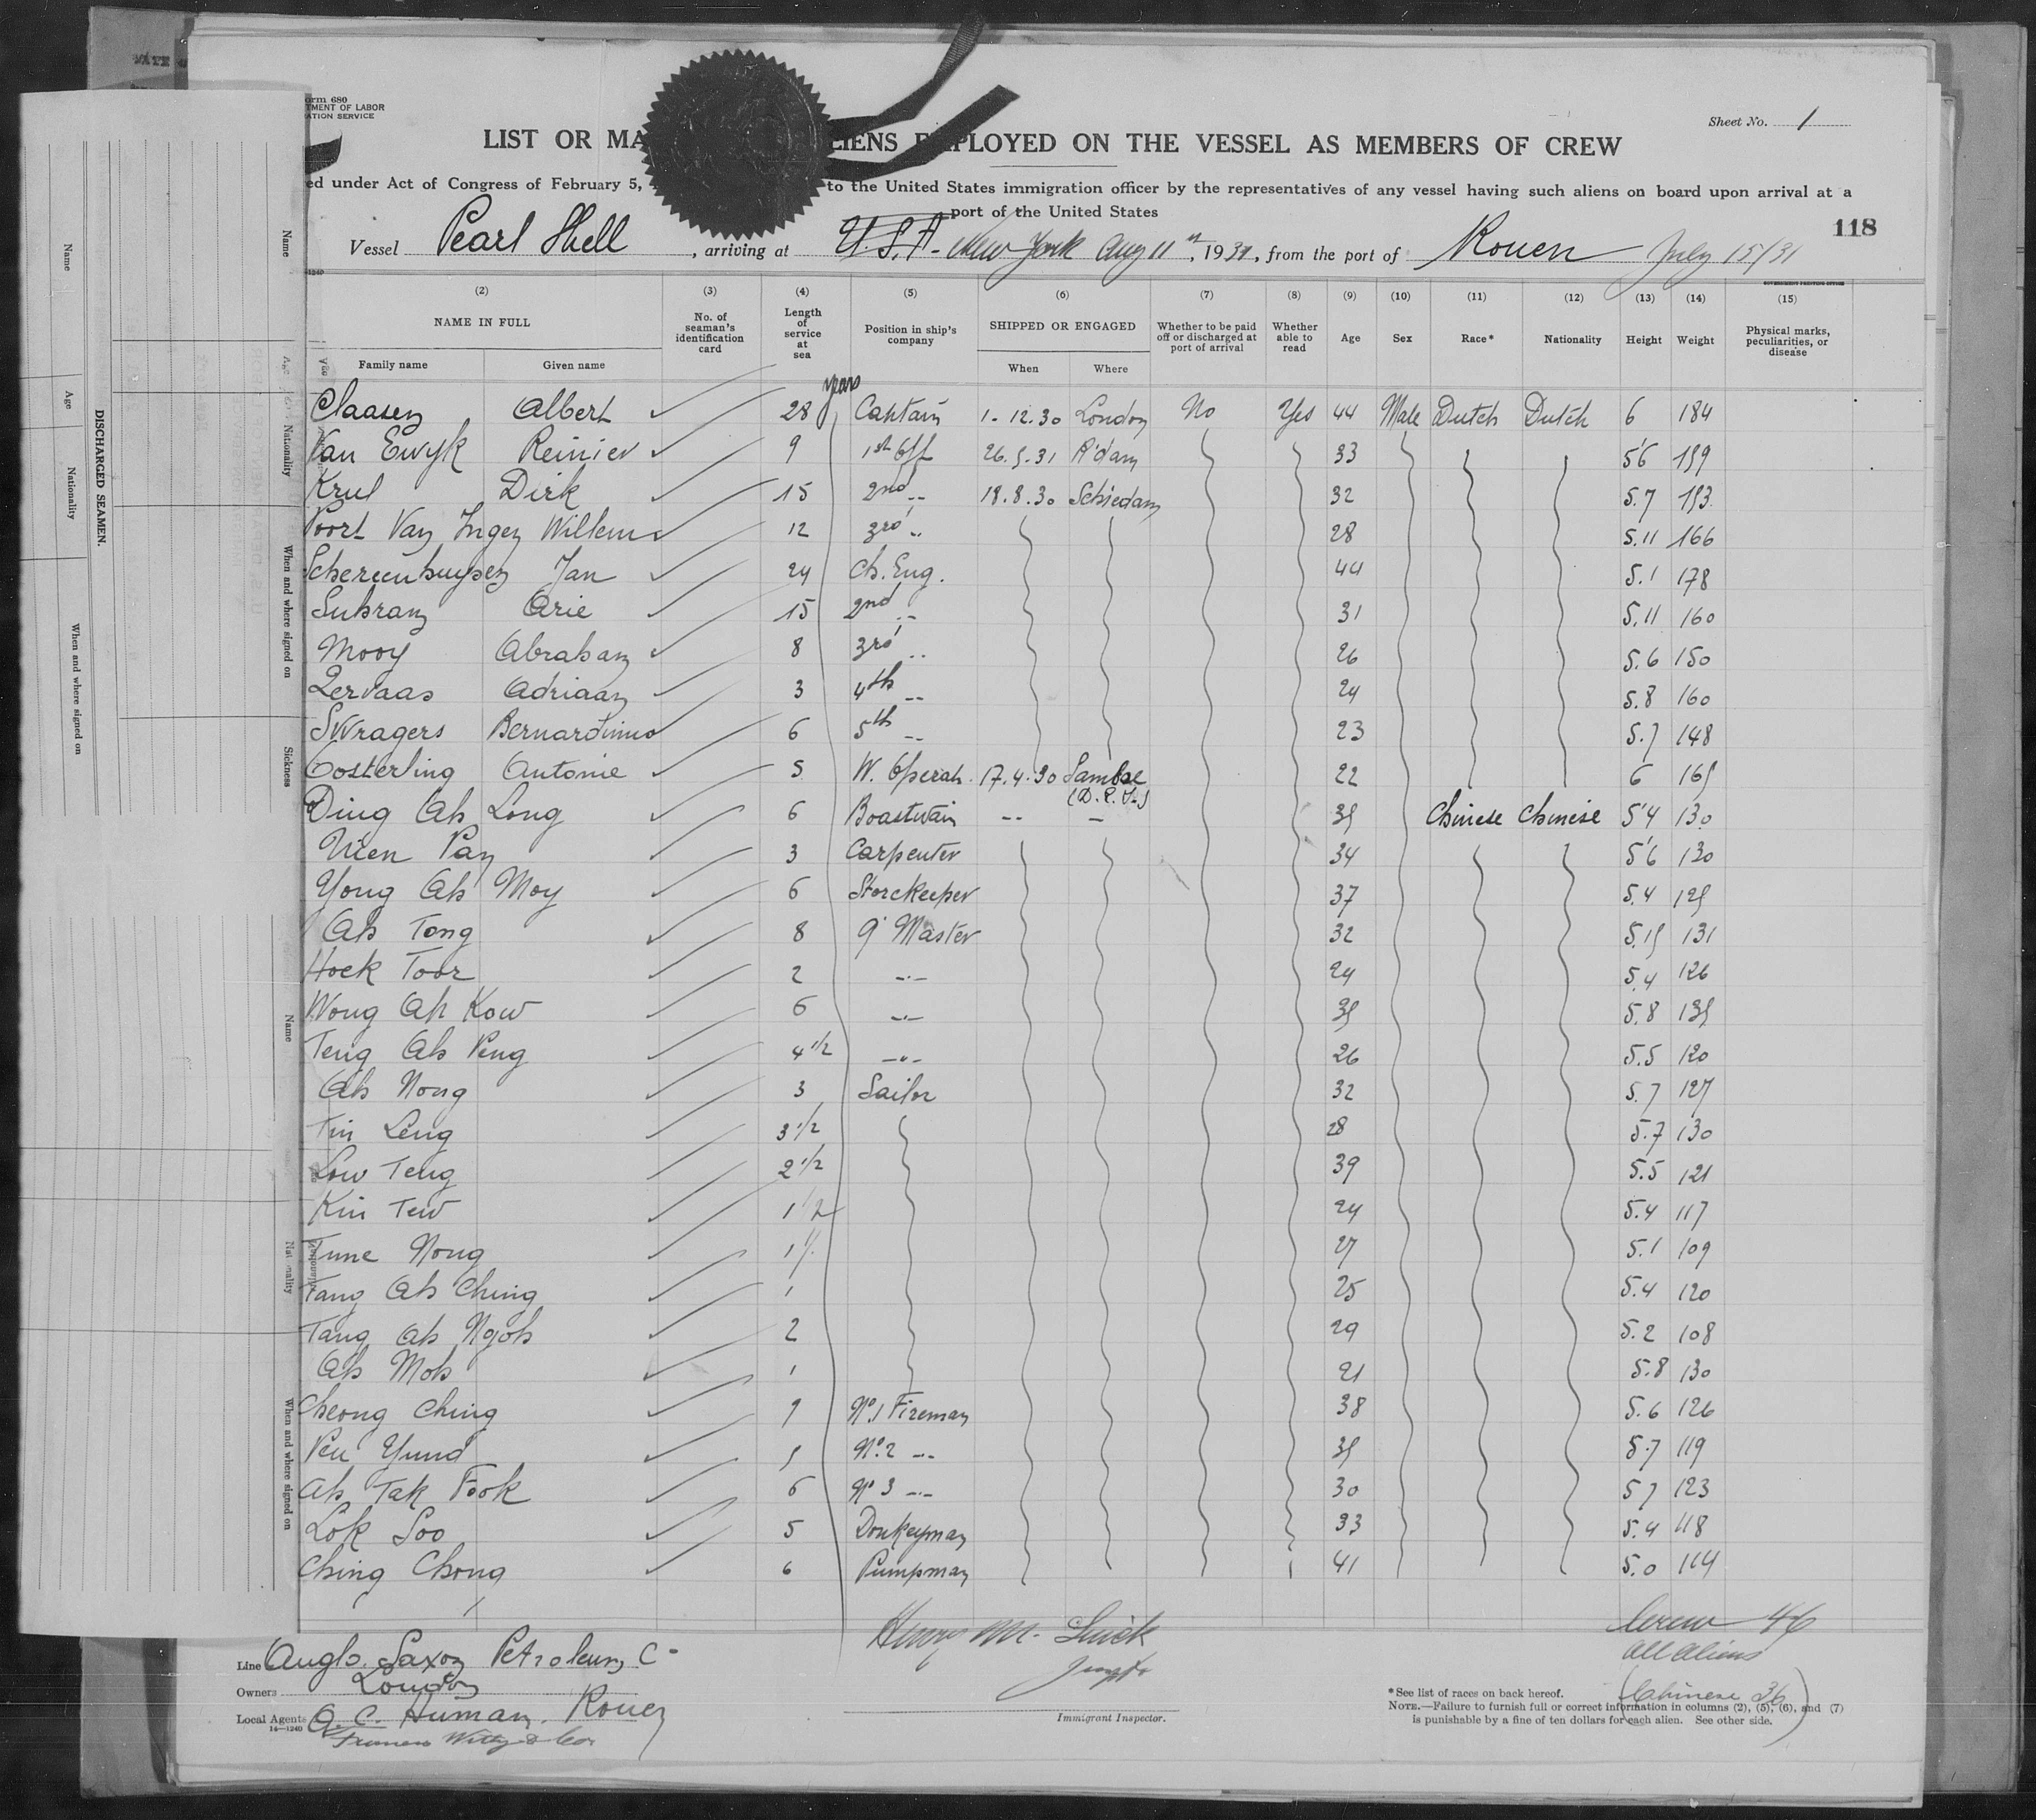 Form 680
TMENT OF LABOR
ATION SERVICE
Sheet No. 1
LIST OR MA LIENS EMPLOYED ON THE VESSEL AS MEMBERS OF CREW
ed under Act of Congress of February 5, to the United States immigration officer by the representatives of any vessel having such aliens on board upon arrival at a
port of the United States
118
Vessel Pearl Shell, arriving at U.S.A. New York Aug 11th, 1931, from the port of Rouen July 15/31
(2) (3) (4) (5) (6) (7) (8) (9) (10) (11) (12) (13) (14) (15)
NAME IN FULL
Family name Given name
No. of seaman's identification card
Length of service at sea
Position in ship's company
SHIPPED OR ENGAGED
When Where
Whether to be paid off or discharged at port of arrival
Whether able to read
Age Sex Race* Nationality Height Weight
Physical marks, peculiarities, or disease
years
Claasen Albert 28 Captain 1-12.30 London No Yes 44 Male Dutch Dutch 6 184
Van Ewyk Reinier 9 1st Off 26.5.31 R'dam 33 5'6 159
Krul Dirk 15 2nd -- 18.8.30 Schiedam 32 5.7 153
Poort Van Ingen Willem 12 3rd -- 28 5.11 166
Jan 24 Ch. Eng. 44 5.1 178
Arie 15 2nd -- 31 5.11 160
Mooy Abraham 8 3rd -- 26 5.6 150
Zervaas Adriaan 3 4th -- 24 5.8 160
Bernardinus 6 5th -- 23 5.7 148
Oosterling Antonie 5 W. Operah. 17.4.30 22 6 165
Ding Ah Long 6 Boastwain -- - 35 Chinese Chinese 5'4 130
Pan 3 Carpenter 34 5'6 130
Yong Ah Moy 6 Storekeeper 37 5.4 125
Ah Tong 8 Q' Master 32 131
Hock Toor 2 -·- 24 5.4 126
Wong Ah Kow 6 -·- 35 5.8 135
Teng Ah Peng 4 1/2 -·- 26 5.5 120
Ah Nong 3 Sailor 32 5.7 127
Tin Leng 3 1/2 28 5.7 130
Low Teng 2 1/2 39 5.5 121
Kin Tew 1 1/2 24 5.4 117
Tune Nong 27 5.1 109
Fang Ah Ching 1 25 5.4 120
Tang Ah Ngoh 2 29 5.2 108
Ah Moh 1 21 5.8 130
Cheong Ching 7 No.1 Fireman 38 5.6 126
No.2 -- 35 5.7 119
Ah Tak Fook 6 No 3 -·- 30 5 7 123
Lok Soo 5 Donkeyman 33 5.4 118
Ching Chong 6 Pumpman 41 5.0 114
Crew 46
All Aliens
(Chinese 36)
Line Anglo Saxon Petroleum Co
Owners London
Local Agents A. C. Human, Rouen
14—1240
Henry M.
Immigrant Inspector.
*See list of races on back hereof.
NOTE.—Failure to furnish full or correct information in columns (2), (5), (6), and (7)
is punishable by a fine of ten dollars for each alien. See other side.
DISCHARGED SEAMEN.
Name
Age
Nationality
When and where signed on
Name
Nationality
When and where signed on
Sickness
Name
Nationality
When and where signed on